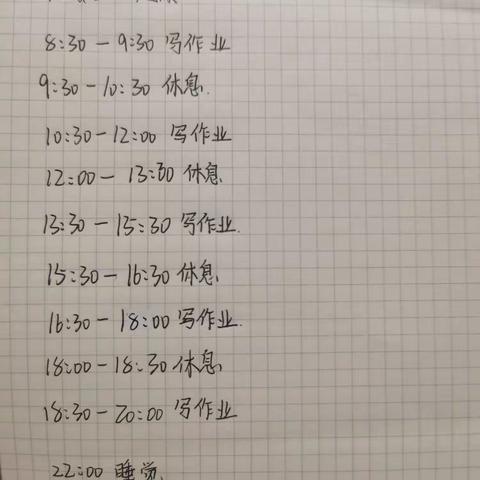 8:30-9:30 写作业
9:30-10:30 休息.
10:30-12:00 写作业
12:00-13:30 休息
13:30-15:30 写作业.
15:30-16:30 休息
16:30-18:00 写作业.
18:00-18:30 休息
18:30-20:00 写作业
22:00 睡觉.